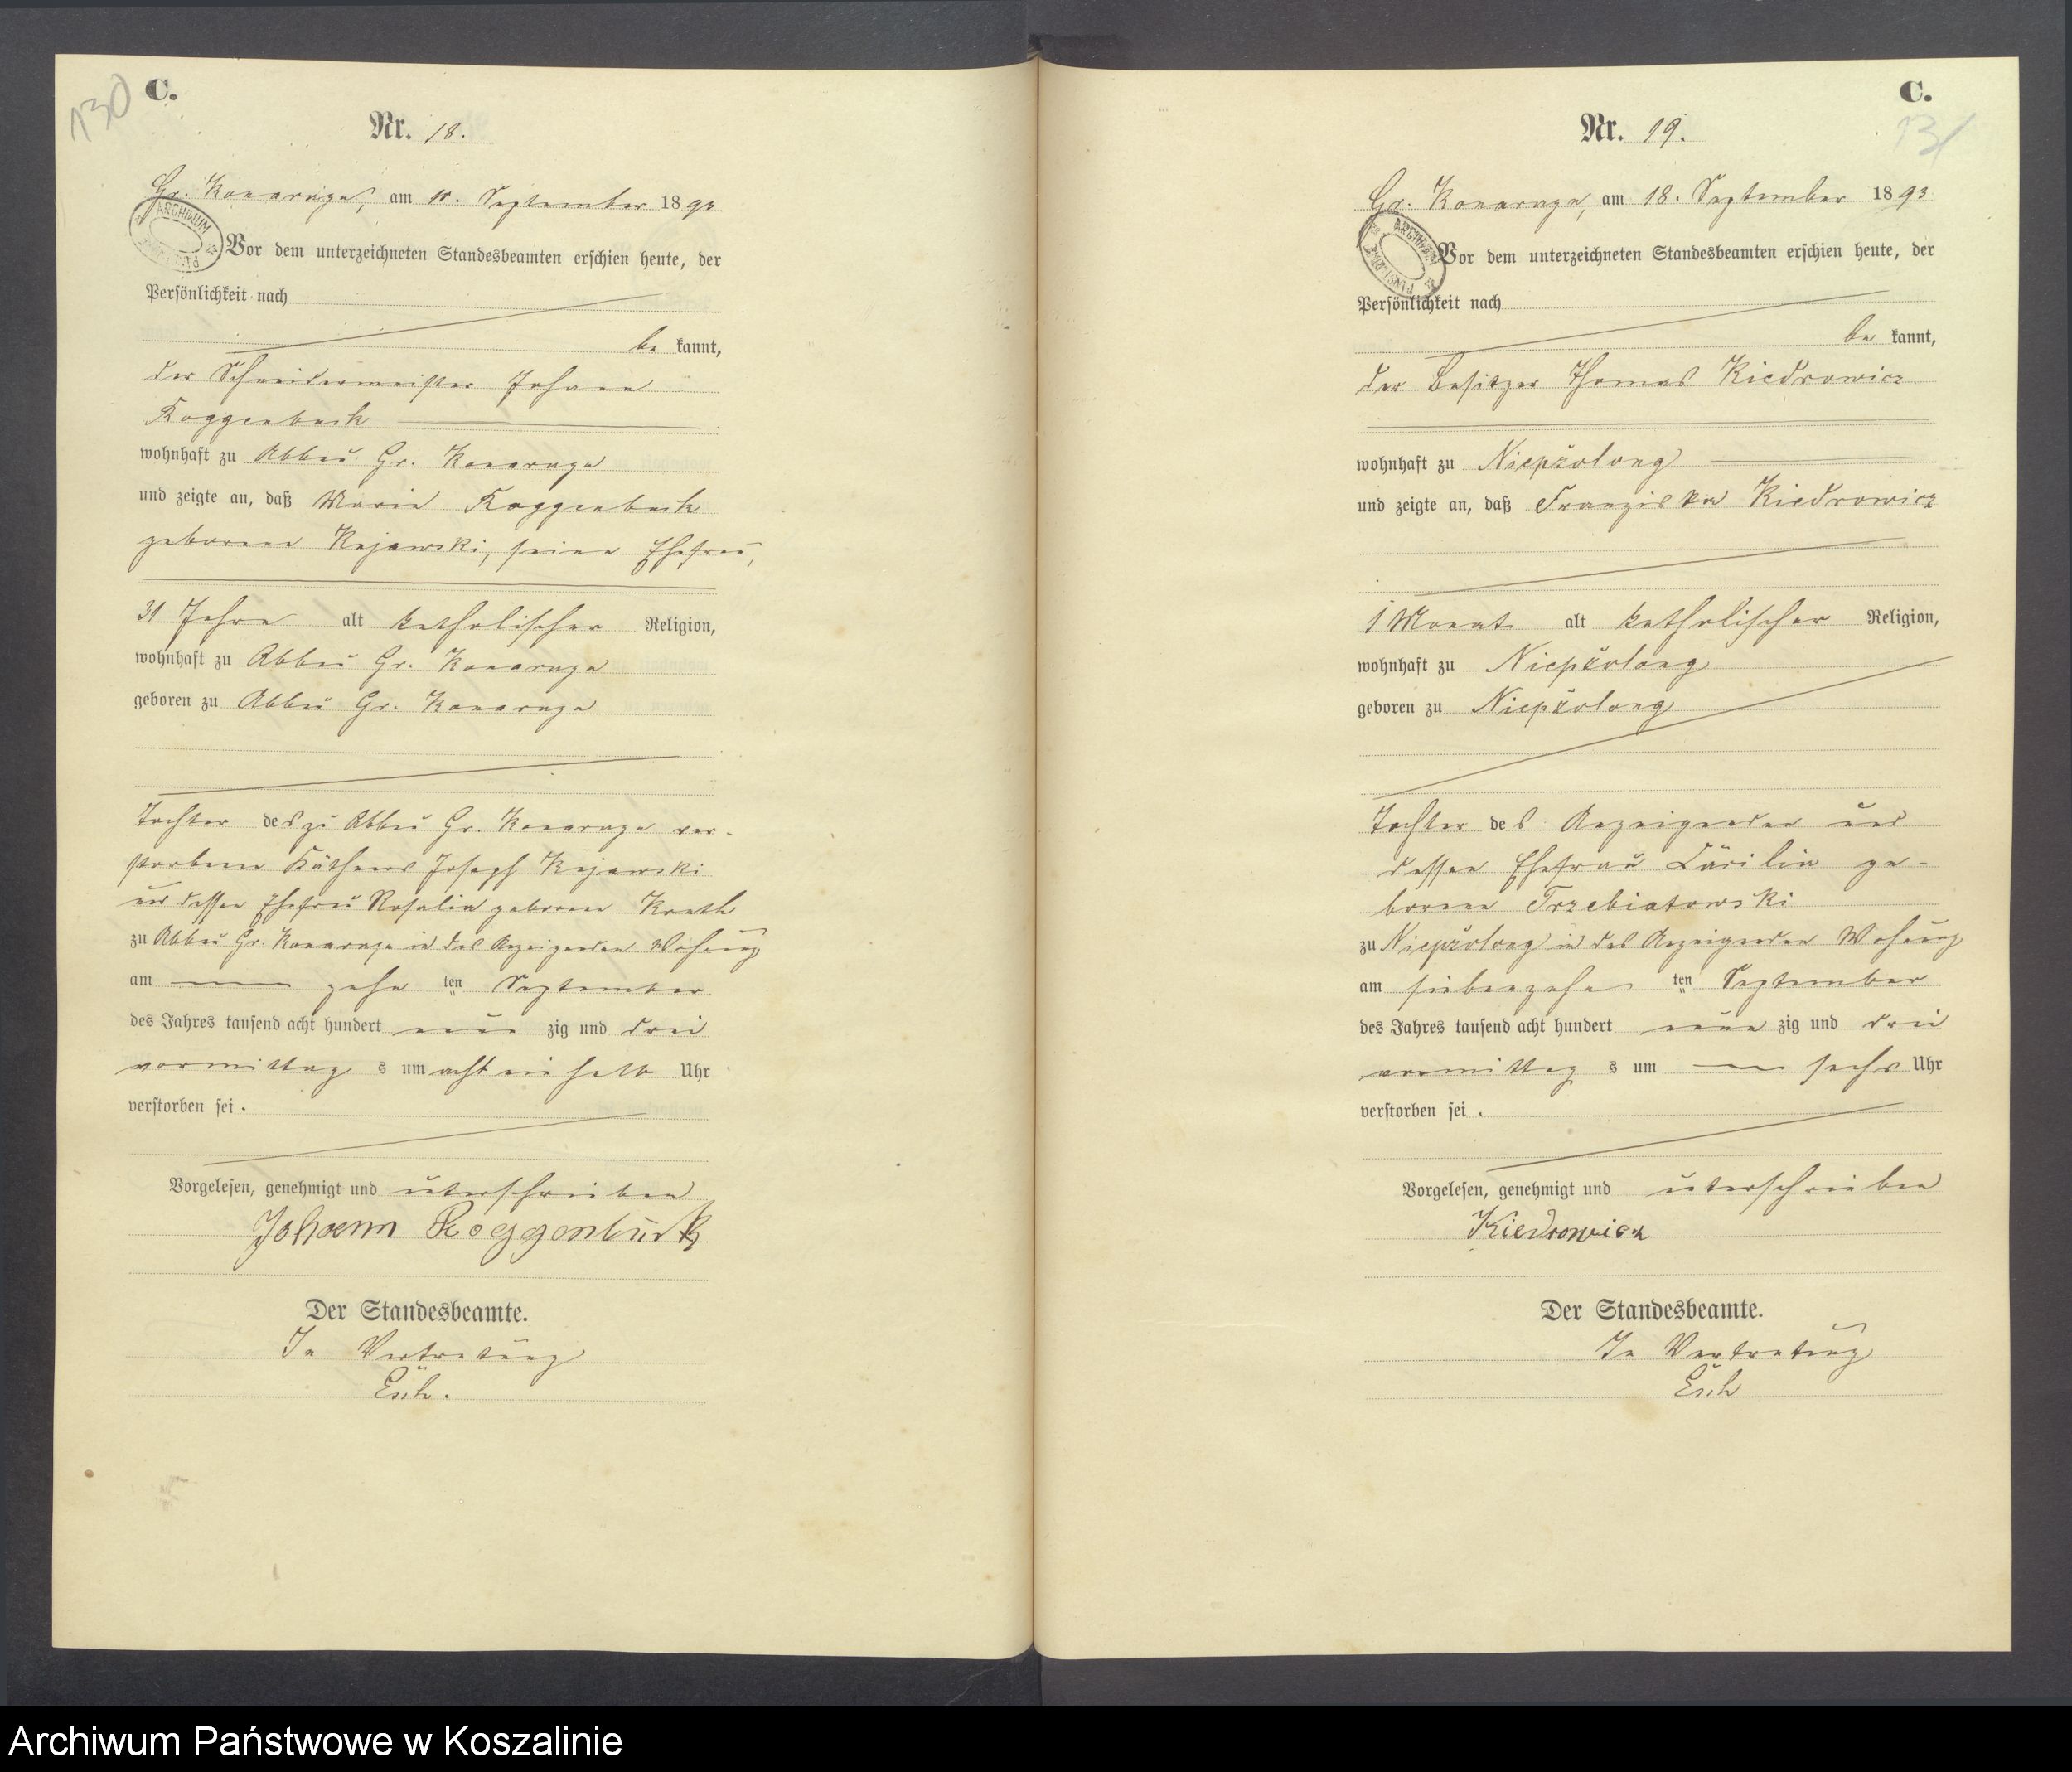 130
C.
Nr. 18.
Gr. Konarzyn, am 11. September 1893
ARCHIWUM
Vor dem unterzeichneten Standesbeamten erschien heute, der
Persönlichkeit nach
be kannt,
der Schneidermeister Johann
Roggenbuck
wohnhaft zu Abbau Gr. Konarzyn
und zeigte an, daß Marie Roggenbuck
geborene Kujawski, seine Ehefrau,
31 Jahre alt katholischer Religion,
wohnhaft zu Abbau Gr. Konarzyn
geboren zu Abbau Gr. Konarzyn
Tochter des zu Abbau Gr. Konarzyn ver-
storbenen Käthners Joseph Kujawski
und dessen Ehefrau Rosalie geborene
zu Abbau Gr. Konarzyn in des Anzeigenden Wohnung
am zehn ten September
des Jahres tausend acht hundert neun zig und drei
vormittag s um acht ein halb Uhr
verstorben sei.
Vorgelesen, genehmigt und unterschrieben
Johann Roggenbuck
Der Standesbeamte.
In Vertretung
C.
131
Nr. 19.
Gr. Konarzyn, am 18. September 1893
ARCHIWUM
Vor dem unterzeichneten Standesbeamten erschien heute, der
Persönlichkeit nach
be kannt,
der Besitzer Thomas Kiedrowicz
wohnhaft zu Niepržolong
und zeigte an, daß Franziska Kiedrowicz
1 Monat alt katholischer Religion,
wohnhaft zu Niepržolong
geboren zu Niepržolong
Tochter des Anzeigenden und
dessen Ehefrau Cäcilia ge-
borene Trzebiatowski
zu Niepržolong in des Anzeigenden Wohnung
am siebenzehn ten September
des Jahres tausend acht hundert neun zig und drei
vormittag s um sechs Uhr
verstorben sei.
Vorgelesen, genehmigt und unterschrieben
Kiedrowicz
Der Standesbeamte.
In Vertretung
Archiwum Państwowe w Koszalinie